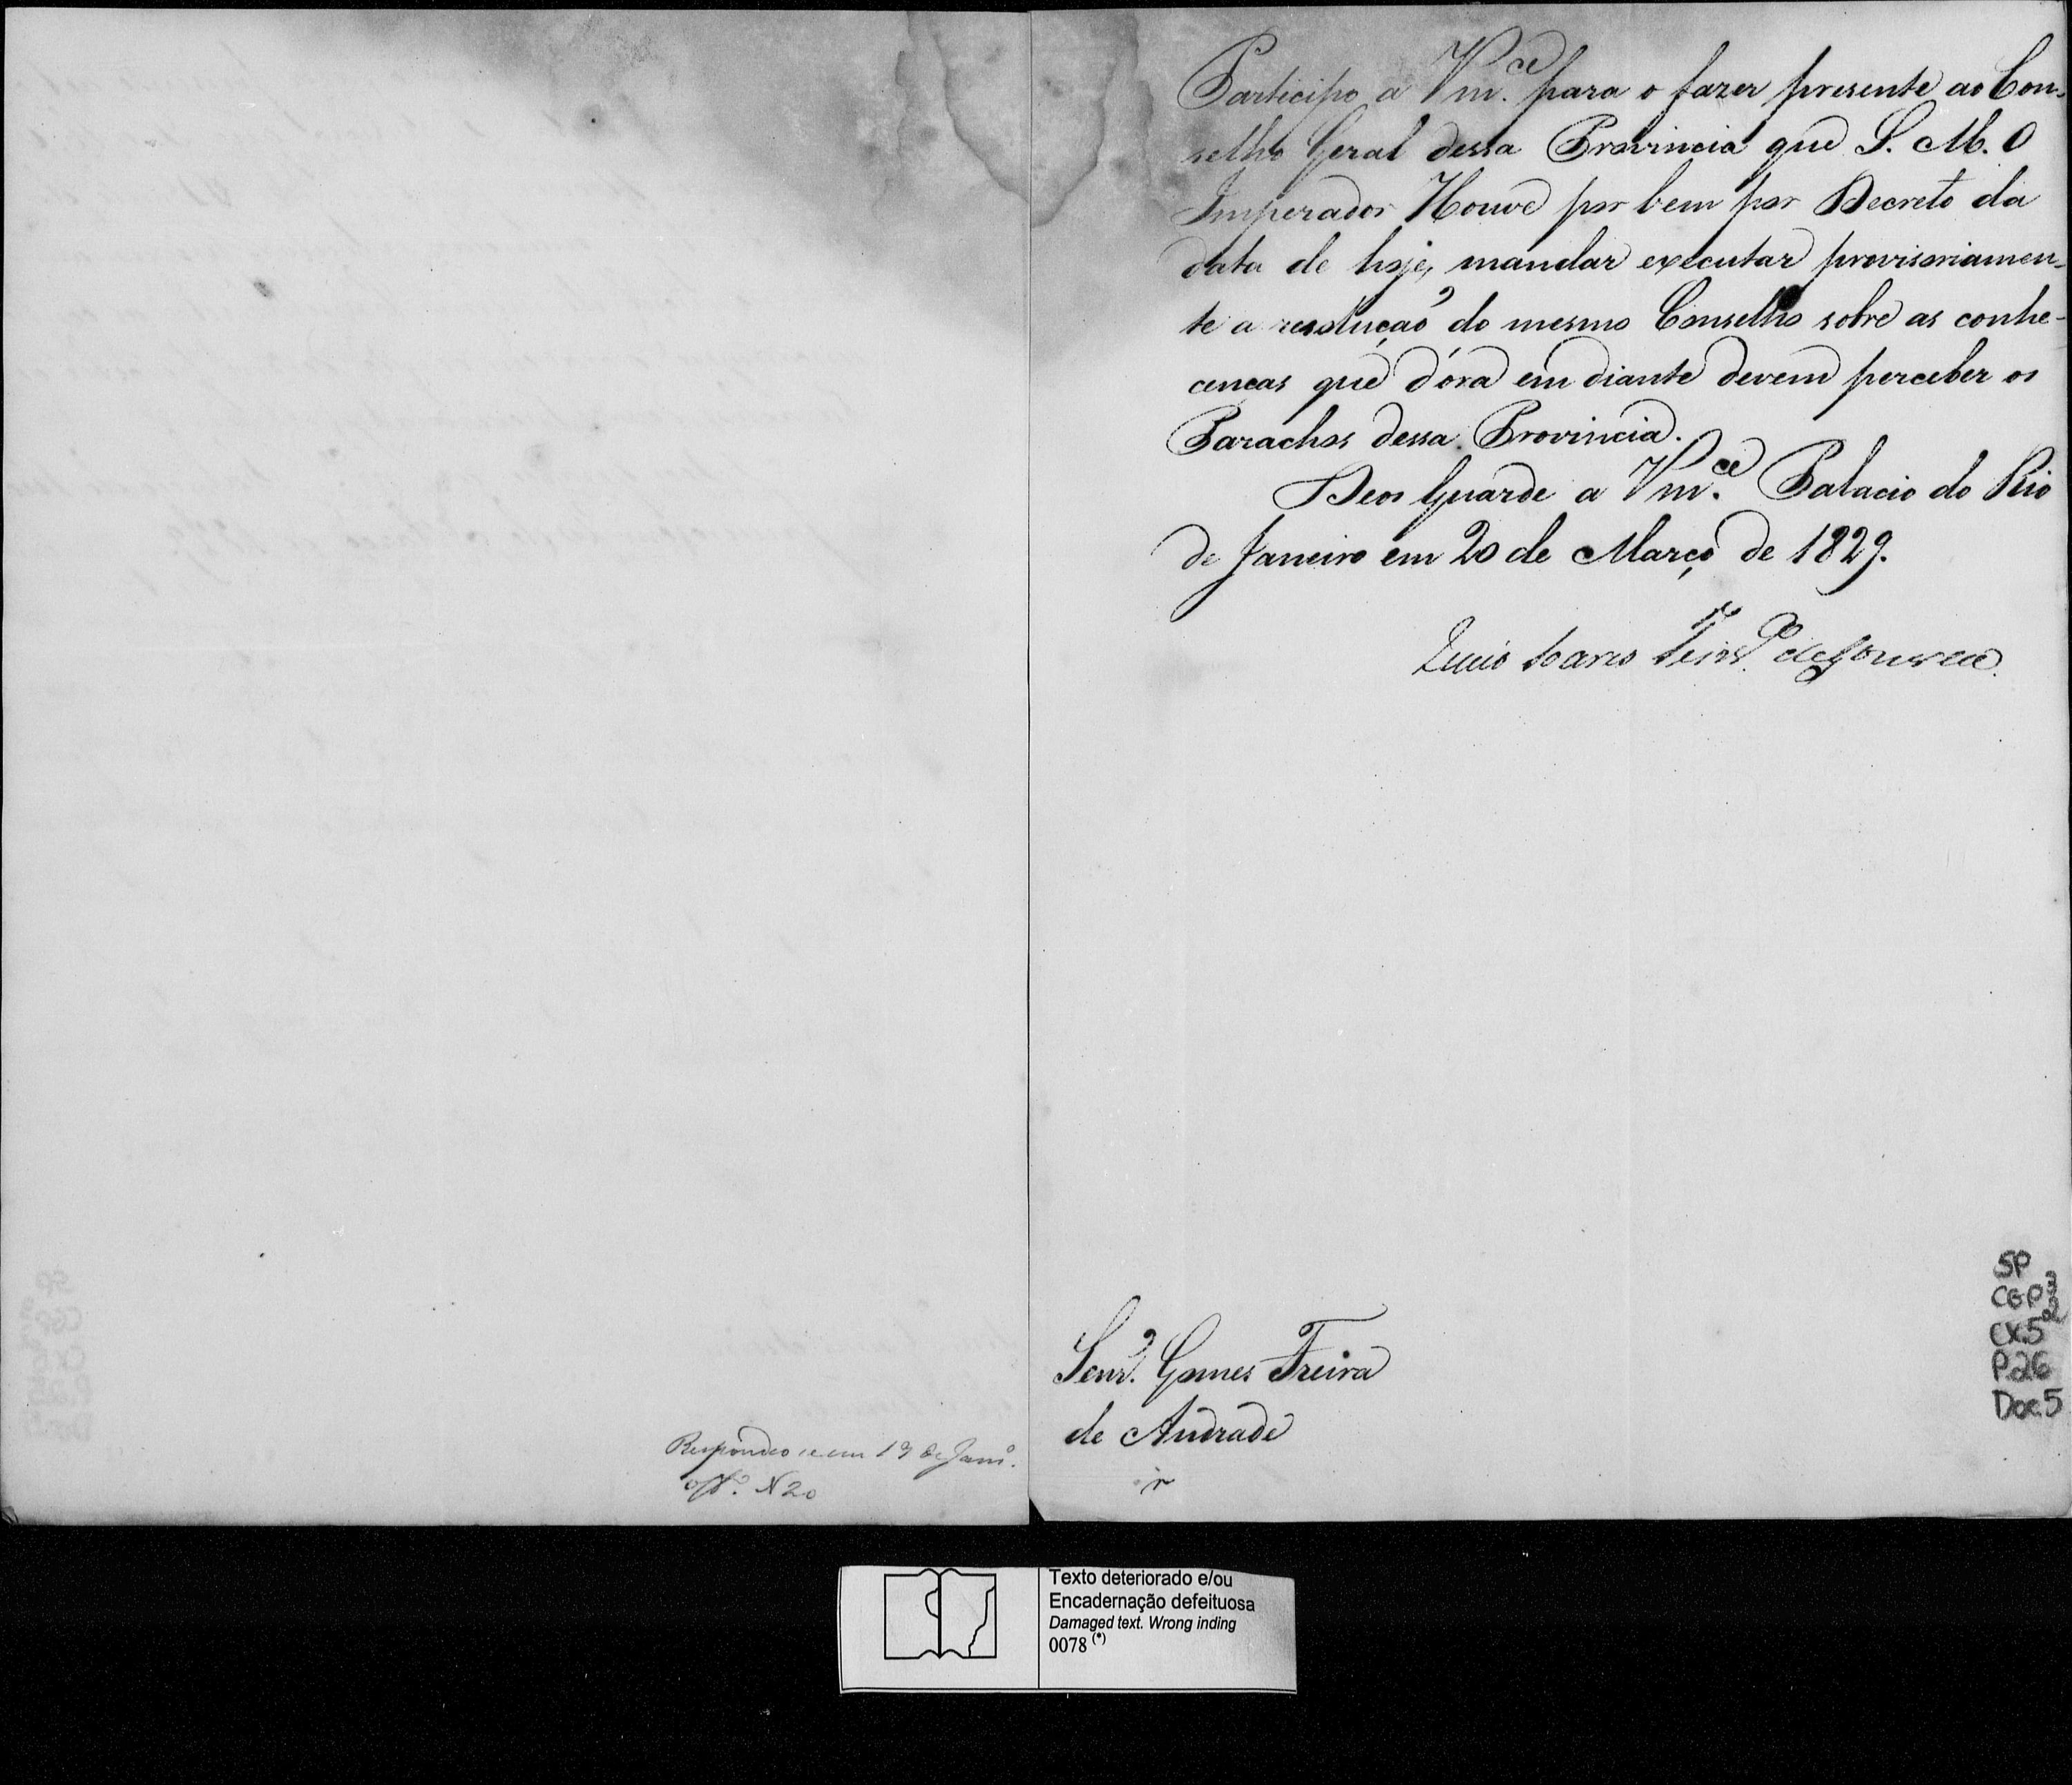 Participo a Vm.ce para o fazer presente ao Con-
selho Geral dessa Provincia que S. M. O
Imperador Houve por bem por Decreto da
data de hoje, mandar executar provisoriamen-
te a resolução do mesmo Conselho sobre as conhe-
cenças que d'óra em diante devem perceber os
Parachos dessa Provincia.
Deos Guarde a Vm.ce Palacio do Rio
de Janeiro em 20 de Março de 1829.
Lucio Soares Teixr.a de Gouvea.
Senr. Gomes Freira
de Andrade
Respondeo se em 19 de Janr.o
off.o N 20
SP
CGP3
CX52
P.26
Doc.5
Texto deteriorado e/ou
Encadernação defeituosa
Damaged text. Wrong inding
0078 (*)